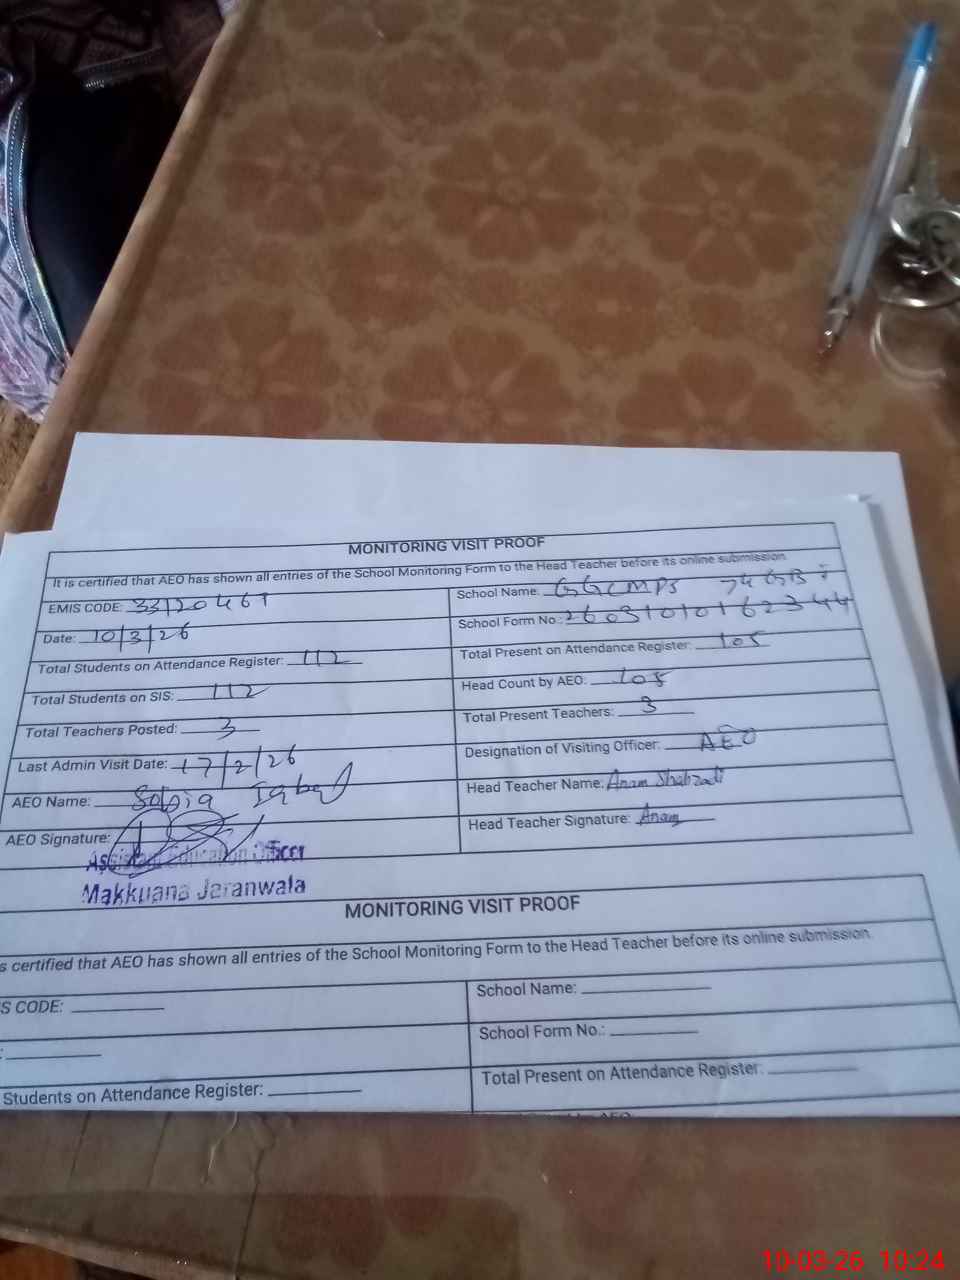 MONITORING VISIT PROOF
It is certified that AEO has shown all entries of the School Monitoring Form to the Head Teacher before its online submission.
EMIS CODE: 33120461
School Name: GGCMPS 74 GB
Date: 10/3/26
School Form No.: 26031010162344
Total Students on Attendance Register: 112
Total Present on Attendance Register: 105
Total Students on SIS: 112
Head Count by AEO: 105
Total Teachers Posted: 3
Total Present Teachers: 3
Last Admin Visit Date: 17/2/26
Designation of Visiting Officer: AEO
AEO Name: Sobia Iqbal
Head Teacher Name: Anam Shahzadi
AEO Signature:
Head Teacher Signature: Anam
Assistant Education Officer
Makkuana Jaranwala
MONITORING VISIT PROOF
s certified that AEO has shown all entries of the School Monitoring Form to the Head Teacher before its online submission.
S CODE:
School Name:
:
School Form No.:
Students on Attendance Register:
Total Present on Attendance Register:
by AEO:
10-03-26 10:24